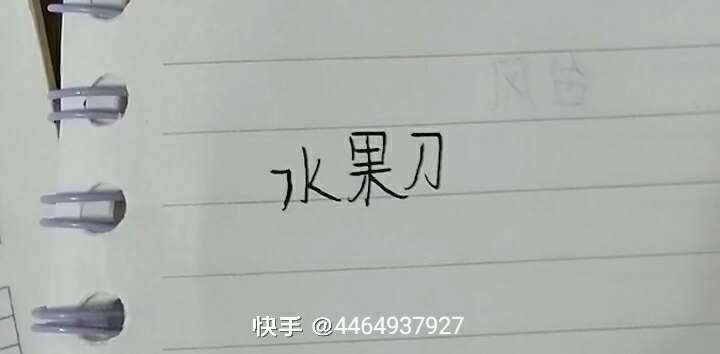 水果刀
快手 @4464937927